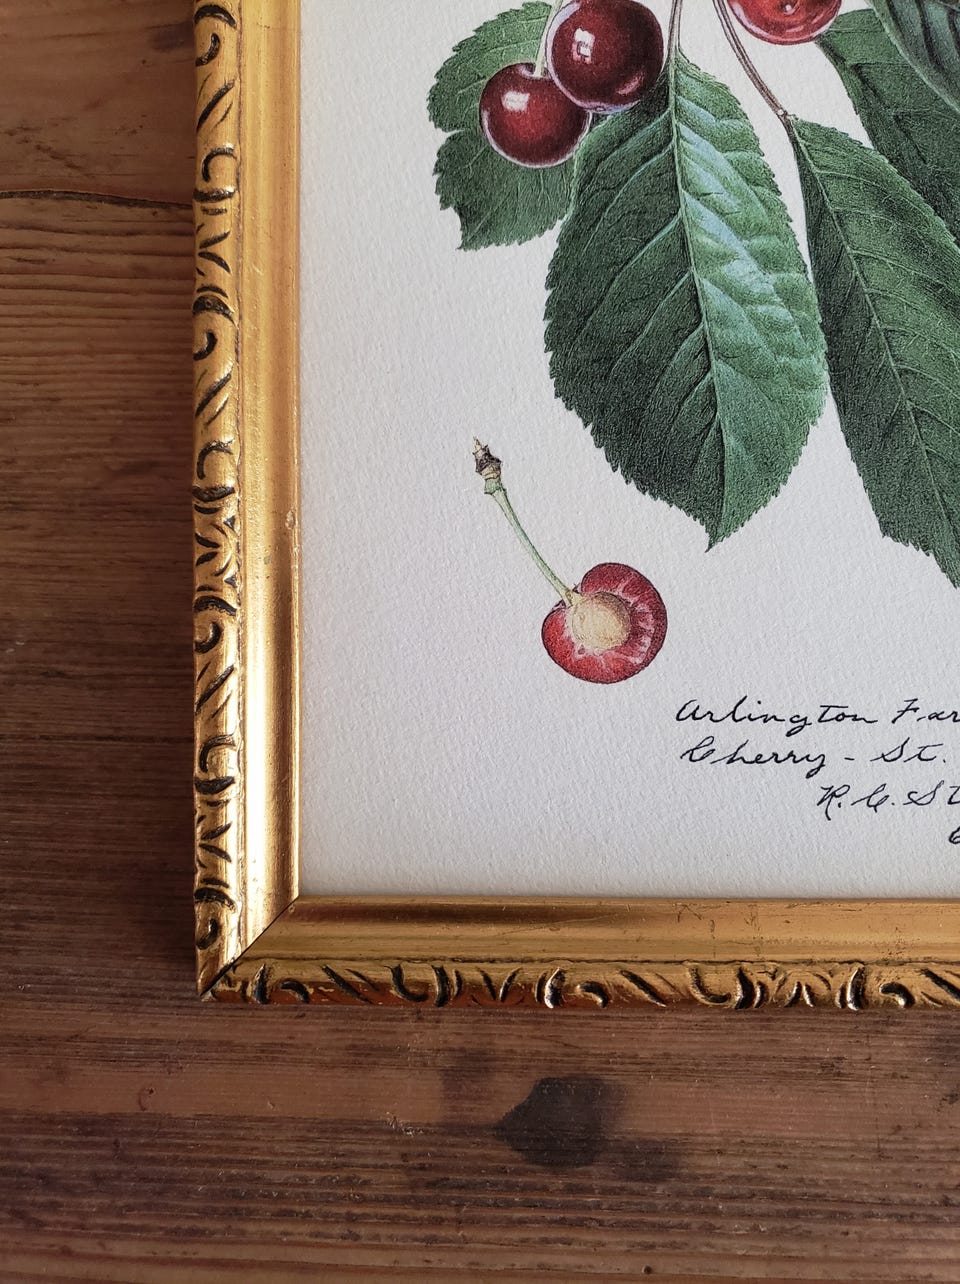 Arlington Far
Cherry - St.
R. C. St